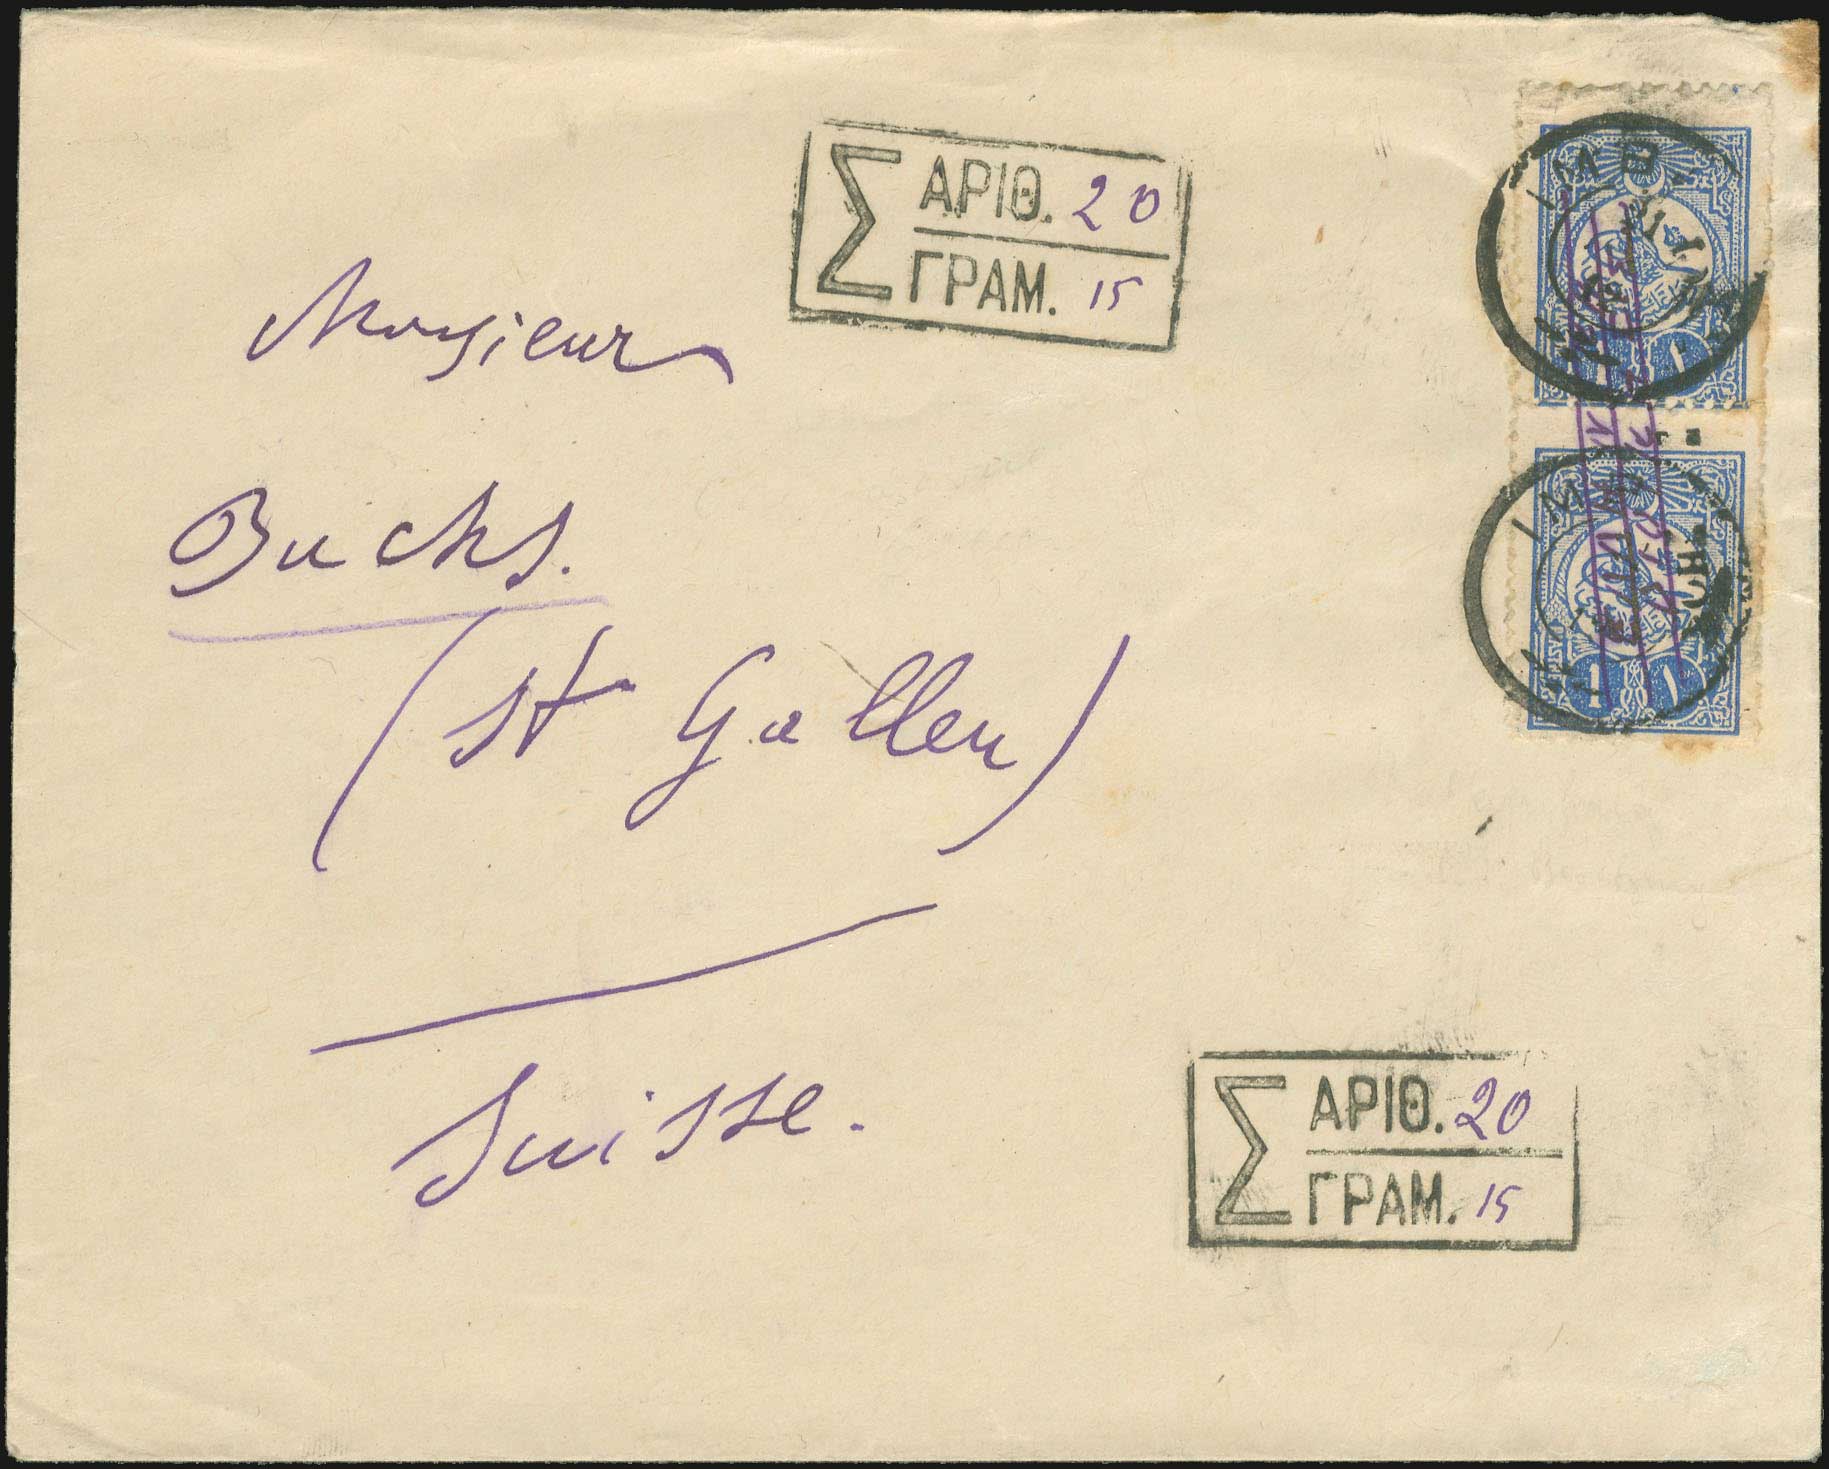 Σ ΑΡΙΘ. 20
ΓΡΑΜ. 15
Monsieur
Buchs.
(St Gallen)
Suisse.
Σ ΑΡΙΘ. 20
ΓΡΑΜ. 15
1 ١
1 ١